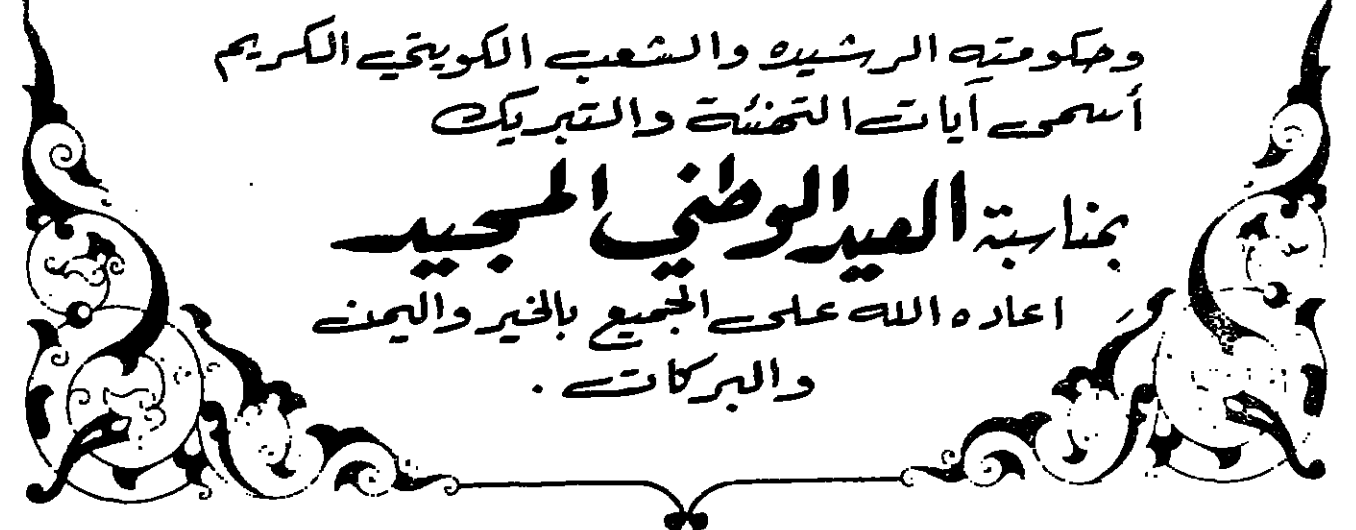 وحكومته الرشيده والشعب الكويتي الكريم
أسمى آيات التهنئة والتبريك
بمناسبة العيد الوطني المجيد
اعاده الله على الجميع بالخير واليمن
والبركات .